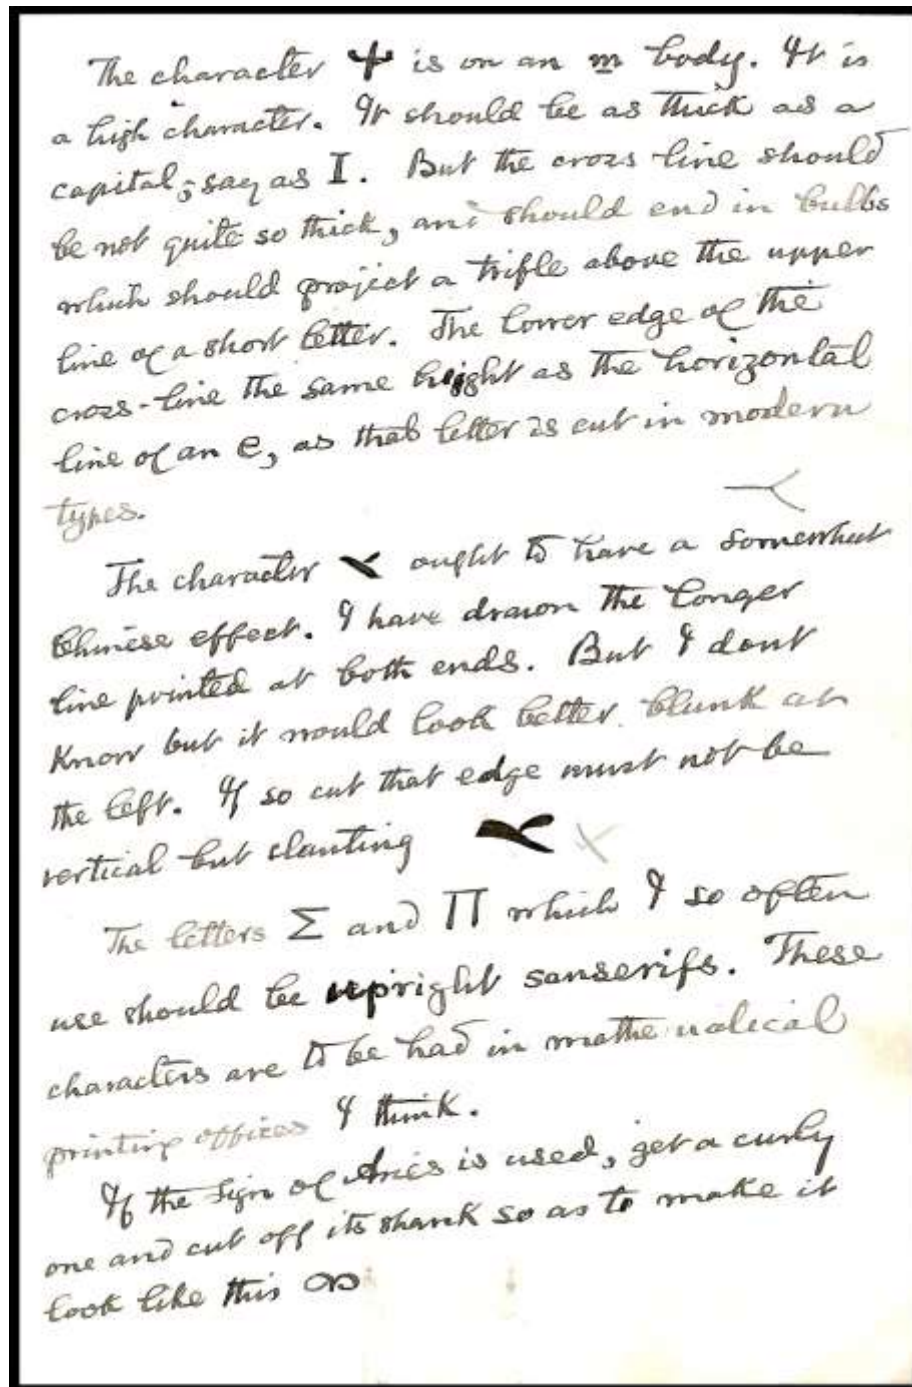 The character ⯐ is on an m body. It is
a high character. It should be as thick as a
capital; say as I. But the cross-line should
be not quite so thick, and should end in bulbs
which should project a trifle above the upper
line of a short letter. The lower edge of the
cross-line the same height as the horizontal
line of an e, as that letter is cut in modern
types.
The character ⤙ ought to have a somewhat
Chinese effect. I have drawn the longer
line pointed at both ends. But I dont
know but it would look better blunk at
the left. If so cut that edge must not be
vertical but slanting
The letters Σ and Π which I so often
use should be upright sanserifs. These
characters are to be had in mathematical
printing offices I think.
If the sign of Aries is used, get a curly
one and cut off its shank so as to make it
look like this